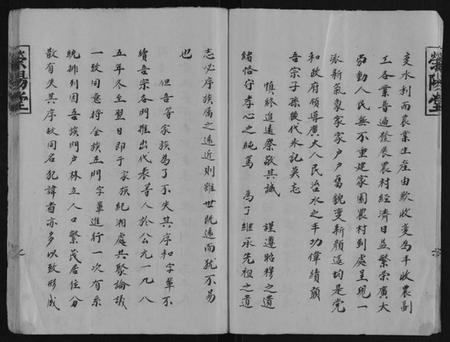 滎陽堂
变水利而农業生産由欠收变為丰收農副
工各業普遍發展農村經济日益繁荣廣大
劳動人民無不重建家園農村到處呈現一
派新氣象家家户户舊貌变新顏這均是党
和政府領導廣大人民治水之丰功偉績願
吾宗子孫後代永記莫忘
慎終追遠祭敬其誠 謹遵前穆之遺
緒恪守孝心之純篤 為了继承先祖之遺
志必序族属之遠近則雖世既遠而就不易
也
但吾等家族為了不失其序和字輩不
續吾宗各門推出代表等人於公元一九八
五年冬至翌日邵于家族祀湘處共聚論議
一致同意将全族五門字輩進行一次有系
統排列因吾族門户林立人口繁茂居住分
散有失其序故同名犯諱者亦多以致形成
滎陽堂